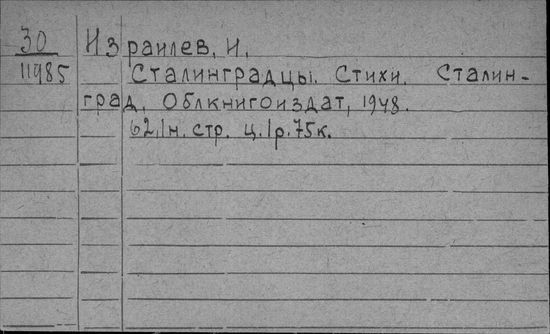 30 Израилев, И.
11985 Сталинградцы. Стихи. Сталин-
град, Облкнигоиздат, 1948.
62,1н. стр. ц. 1р. 75к.